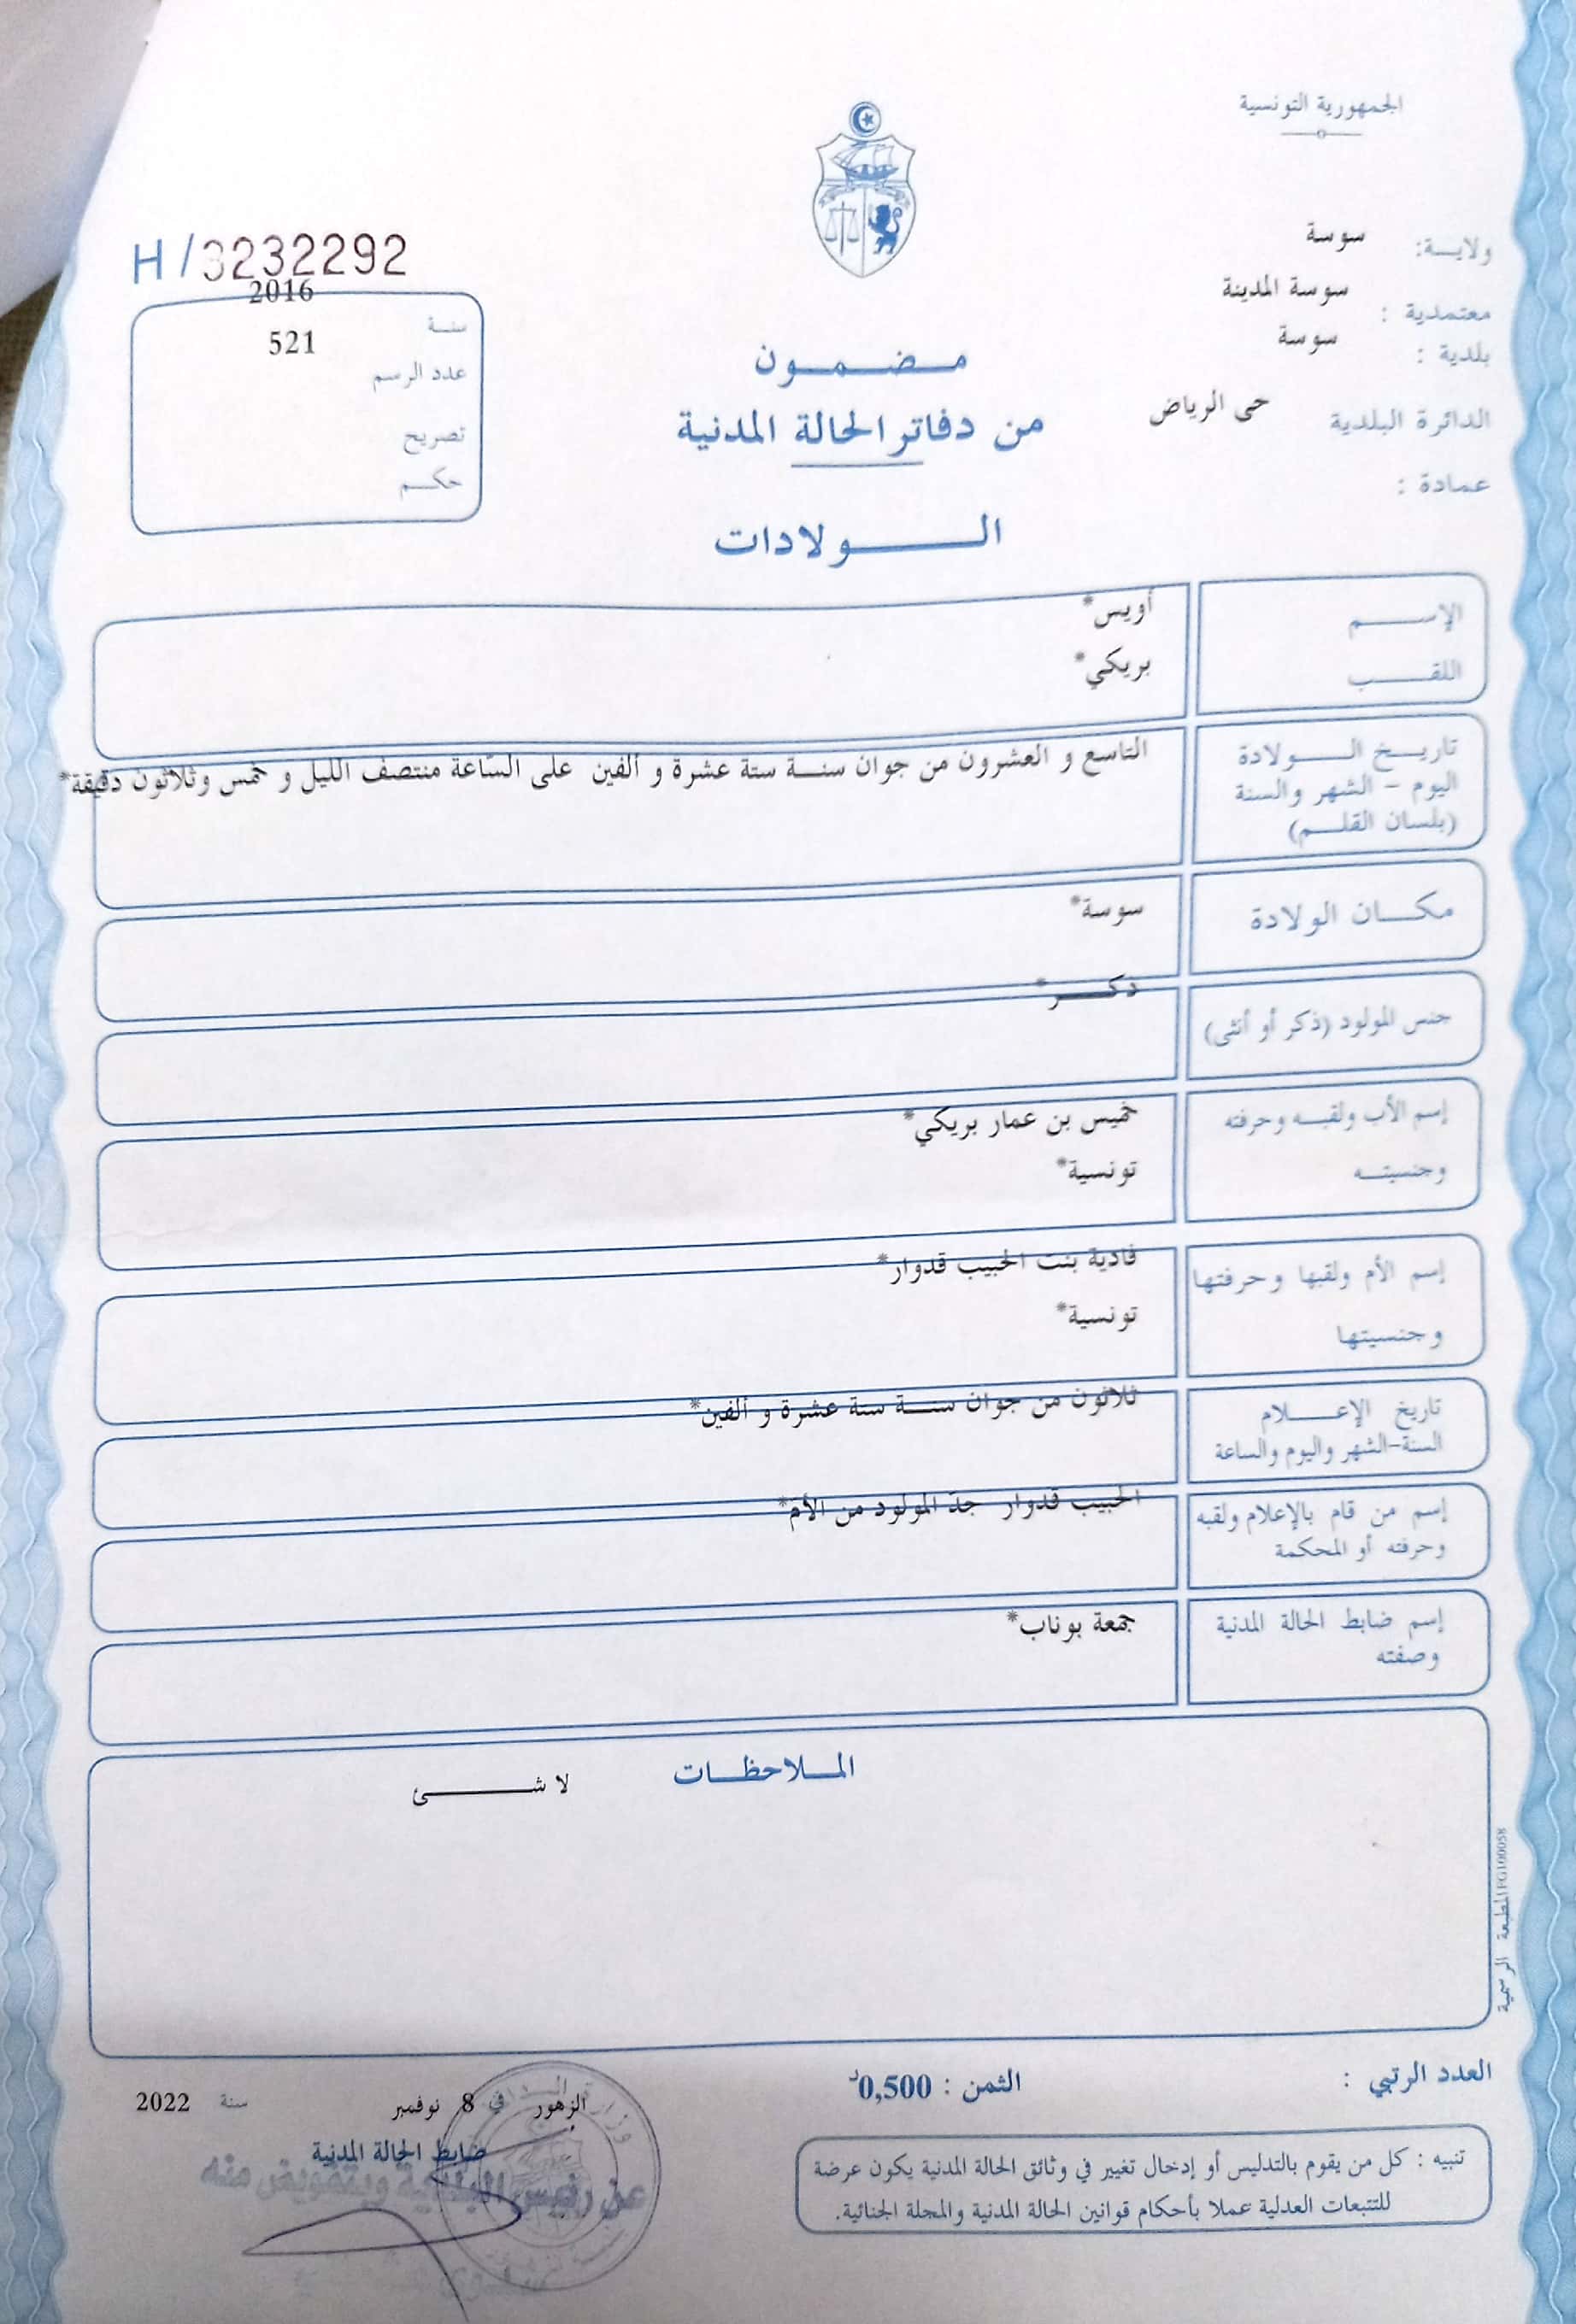 الجمهورية التونسية
ولايـــة: سوسة
معتمدية : سوسة المدينة
بلدية : سوسة
الدائرة البلدية حى الرياض
عمادة :
H/3232292
سنـة 2016
عدد الرسم 521
تصريح
حكـــم
مـــضـــمـــون
من دفاتر الحالة المدنية
الــــــولادات
الإســــــم أويس*
اللقـــــب بريكي*
تاريـــخ الـــــولادة التاسع و العشرون من جوان سنـــة ستة عشرة و ألفين على السّاعة منتصف الليل و خمس وثلاثون دقيقة*
اليوم - الشهر والسنة
(بلسان القلـــم)
مكـــان الولادة سوسة*
جنس المولود (ذكر أو أنثى) ذكـــــر*
إسم الأب ولقبـــه وحرفته خميس بن عمار بريكي*
وجنسيتـــه تونسية*
إسم الأم ولقبها وحرفتها فادية بنت الحبيب قدوار*
وجنسيتها تونسية*
تاريخ الإعـــــلام ثلاثون من جوان سنـــة ستة عشرة و ألفين*
السنة-الشهر واليوم والساعة
إسم من قام بالإعلام ولقبه الحبيب قدوار جدّ المولود من الأم*
وحرفته أو المحكمة
إسم ضابط الحالة المدنية جمعة بوناب*
وصفته
المـــلاحظـــات
لا شـــــــئ
المطبعة الرسمية IPG100058
العدد الرتبي :
الثمن : 0,500د
الزهور في 8 نوفمبر سنة 2022
ضابط الحالة المدنية
عن رئيس البلدية وبتفويض منه
تنبيه : كل من يقوم بالتدليس أو إدخال تغيير في وثائق الحالة المدنية يكون عرضة
للتتبعات العدلية عملا بأحكام قوانين الحالة المدنية والمجلة الجنائية.